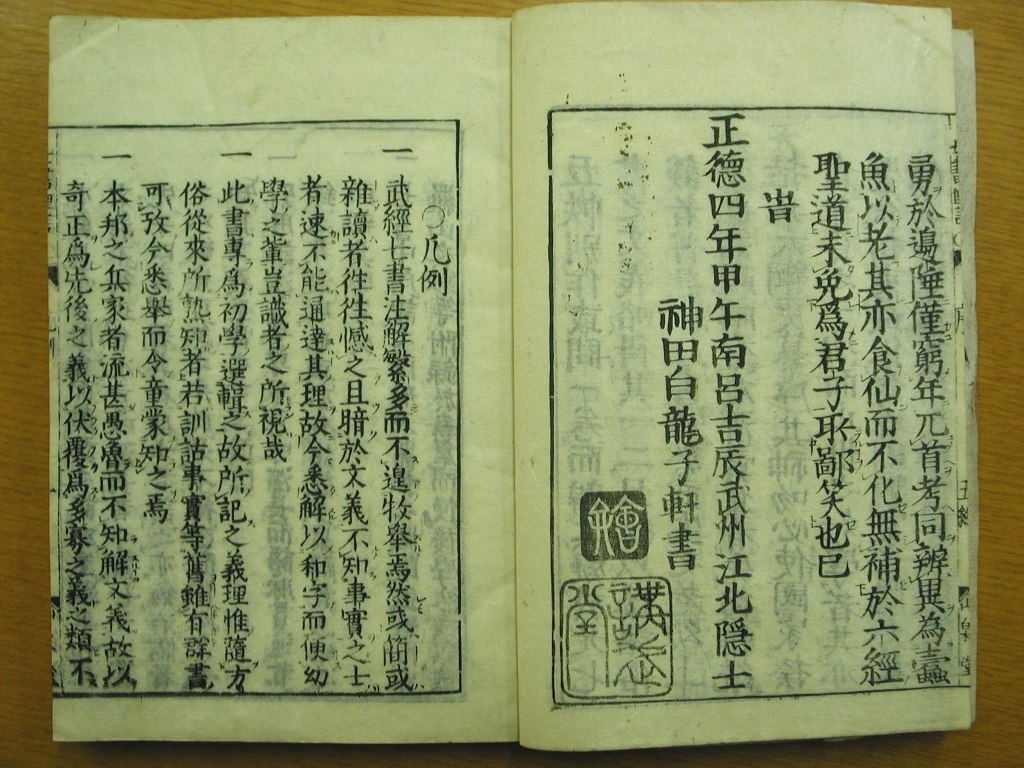 勇於邊陲僅窮年兀首考同辨異為蠧
魚以老其亦食仙而不化無補於六經
聖道未免為君子取鄙笑也已
旹
正德四年甲午南呂吉辰武州江北隱士
神田白龍子軒書
〇凡例
一 武經七書注解繁多而不遑枚舉焉然或簡或
雜讀者徃徃憾之且暗於文義不知事實之士
者速不能通達其理故今悉解以和字而便幼
學之輩豈識者之所視哉
一 此書專為初學選輯之故所記之義理惟隨方
俗從來所熟知者若訓詁事實等舊雖有辭書
可攷今悉舉而令童蒙知之焉
一 本邦之兵家者流甚愚魯而不知解文義故以
奇正為先後之義以伏覆為多寡之義之類不